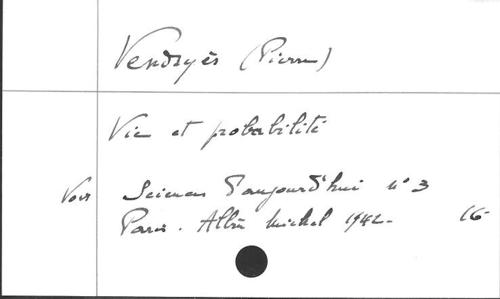 Vendryès (Pierre)
Vie et probabilité
Voir Sciences d'aujourd'hui n° 3
Paris. Albin Michel 1942- 16-